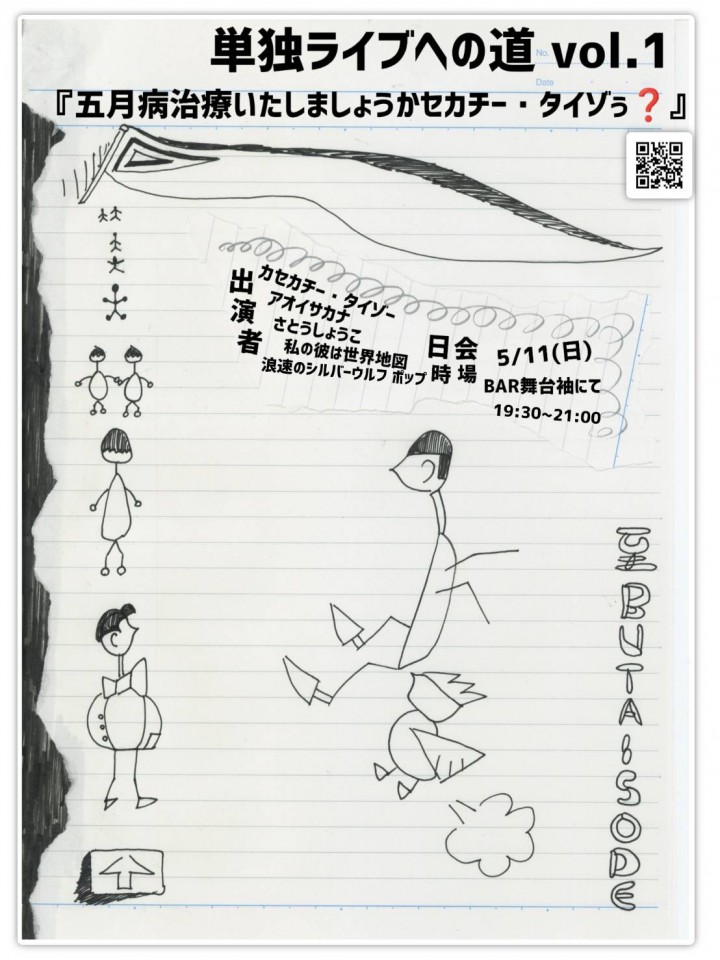 単独ライブへの道 vol.1
No.
Date
『五月病治療いたしましょうかセカチー・タイゾぅ❓』
出演者
カセカチー・タイゾー
アオイサカナ
さとうしょうこ
私の彼は世界地図
浪速のシルバーウルフ ポップ
日時
会場
5/11(日)
BAR舞台袖にて
19:30~21:00
至
BUTAiSODE